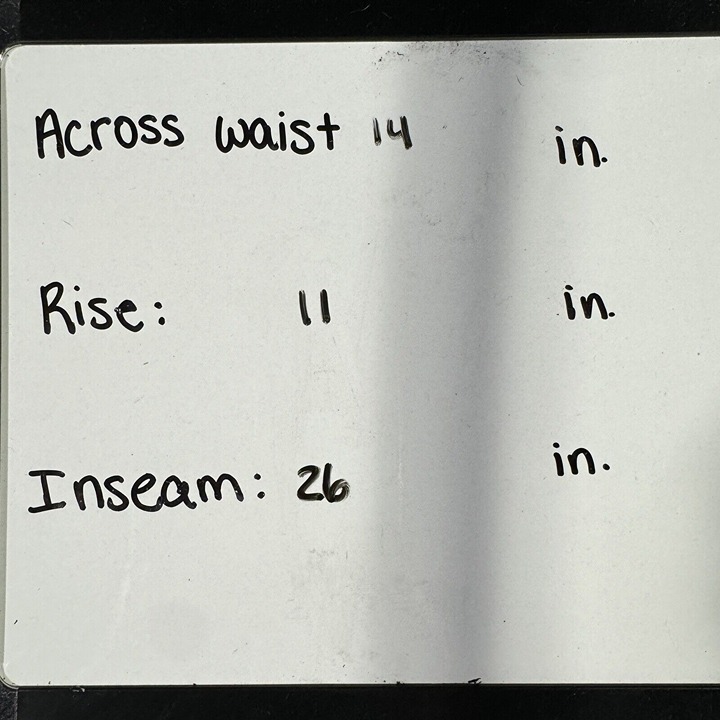 Across waist 14 in.
Rise: 11 in.
Inseam: 26 in.